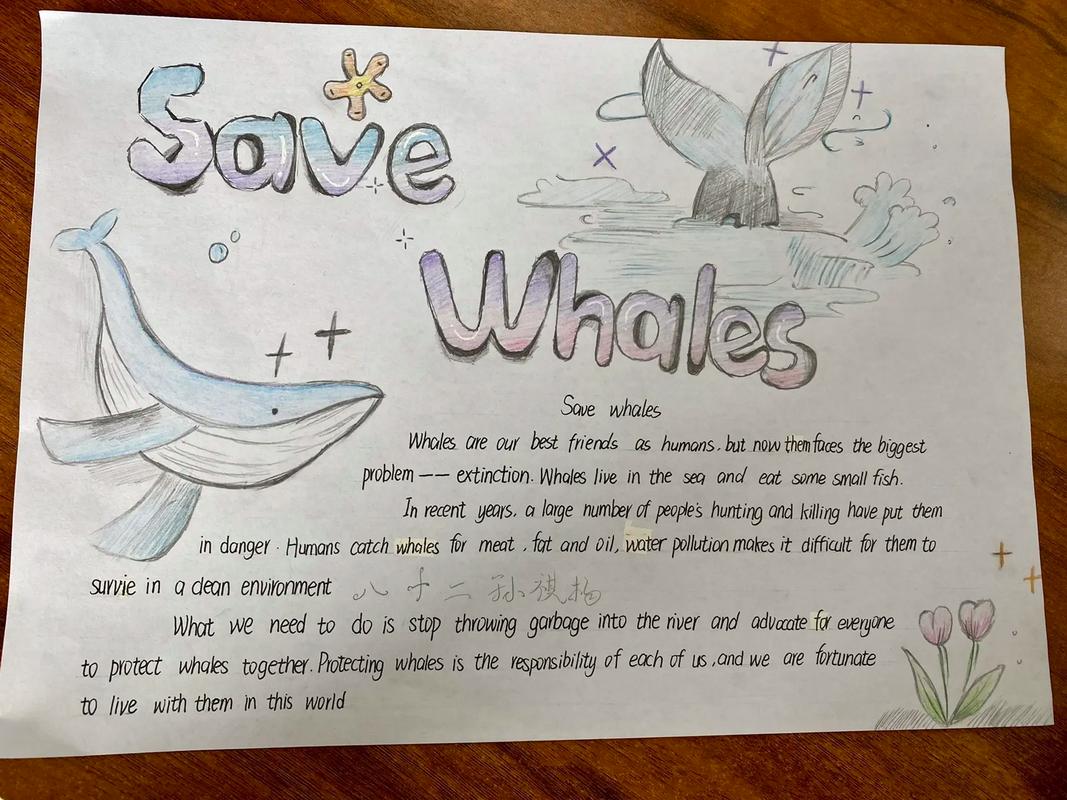 Save
Whales
Save whales
Whales are our best friends as humans, but now them faces the biggest
problem —— extinction. Whales live in the sea and eat some small fish.
In recent years, a large number of people's hunting and killing have put them
in danger. Humans catch whales for meat, fat and oil, water pollution makes it difficult for them to
survie in a clean environment 八十二 孙祺杨
What we need to do is stop throwing garbage into the river and advocate for everyone
to protect whales together. Protecting whales is the responsibility of each of us, and we are fortunate
to live with them in this world